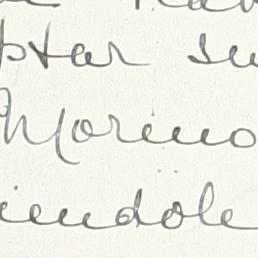 ptar su
Moreno
iendole